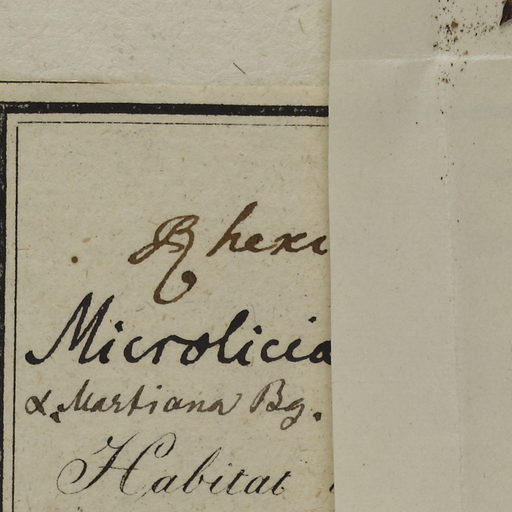 Rhexi
Microlicia
α. Martiana Bg.
Habitat